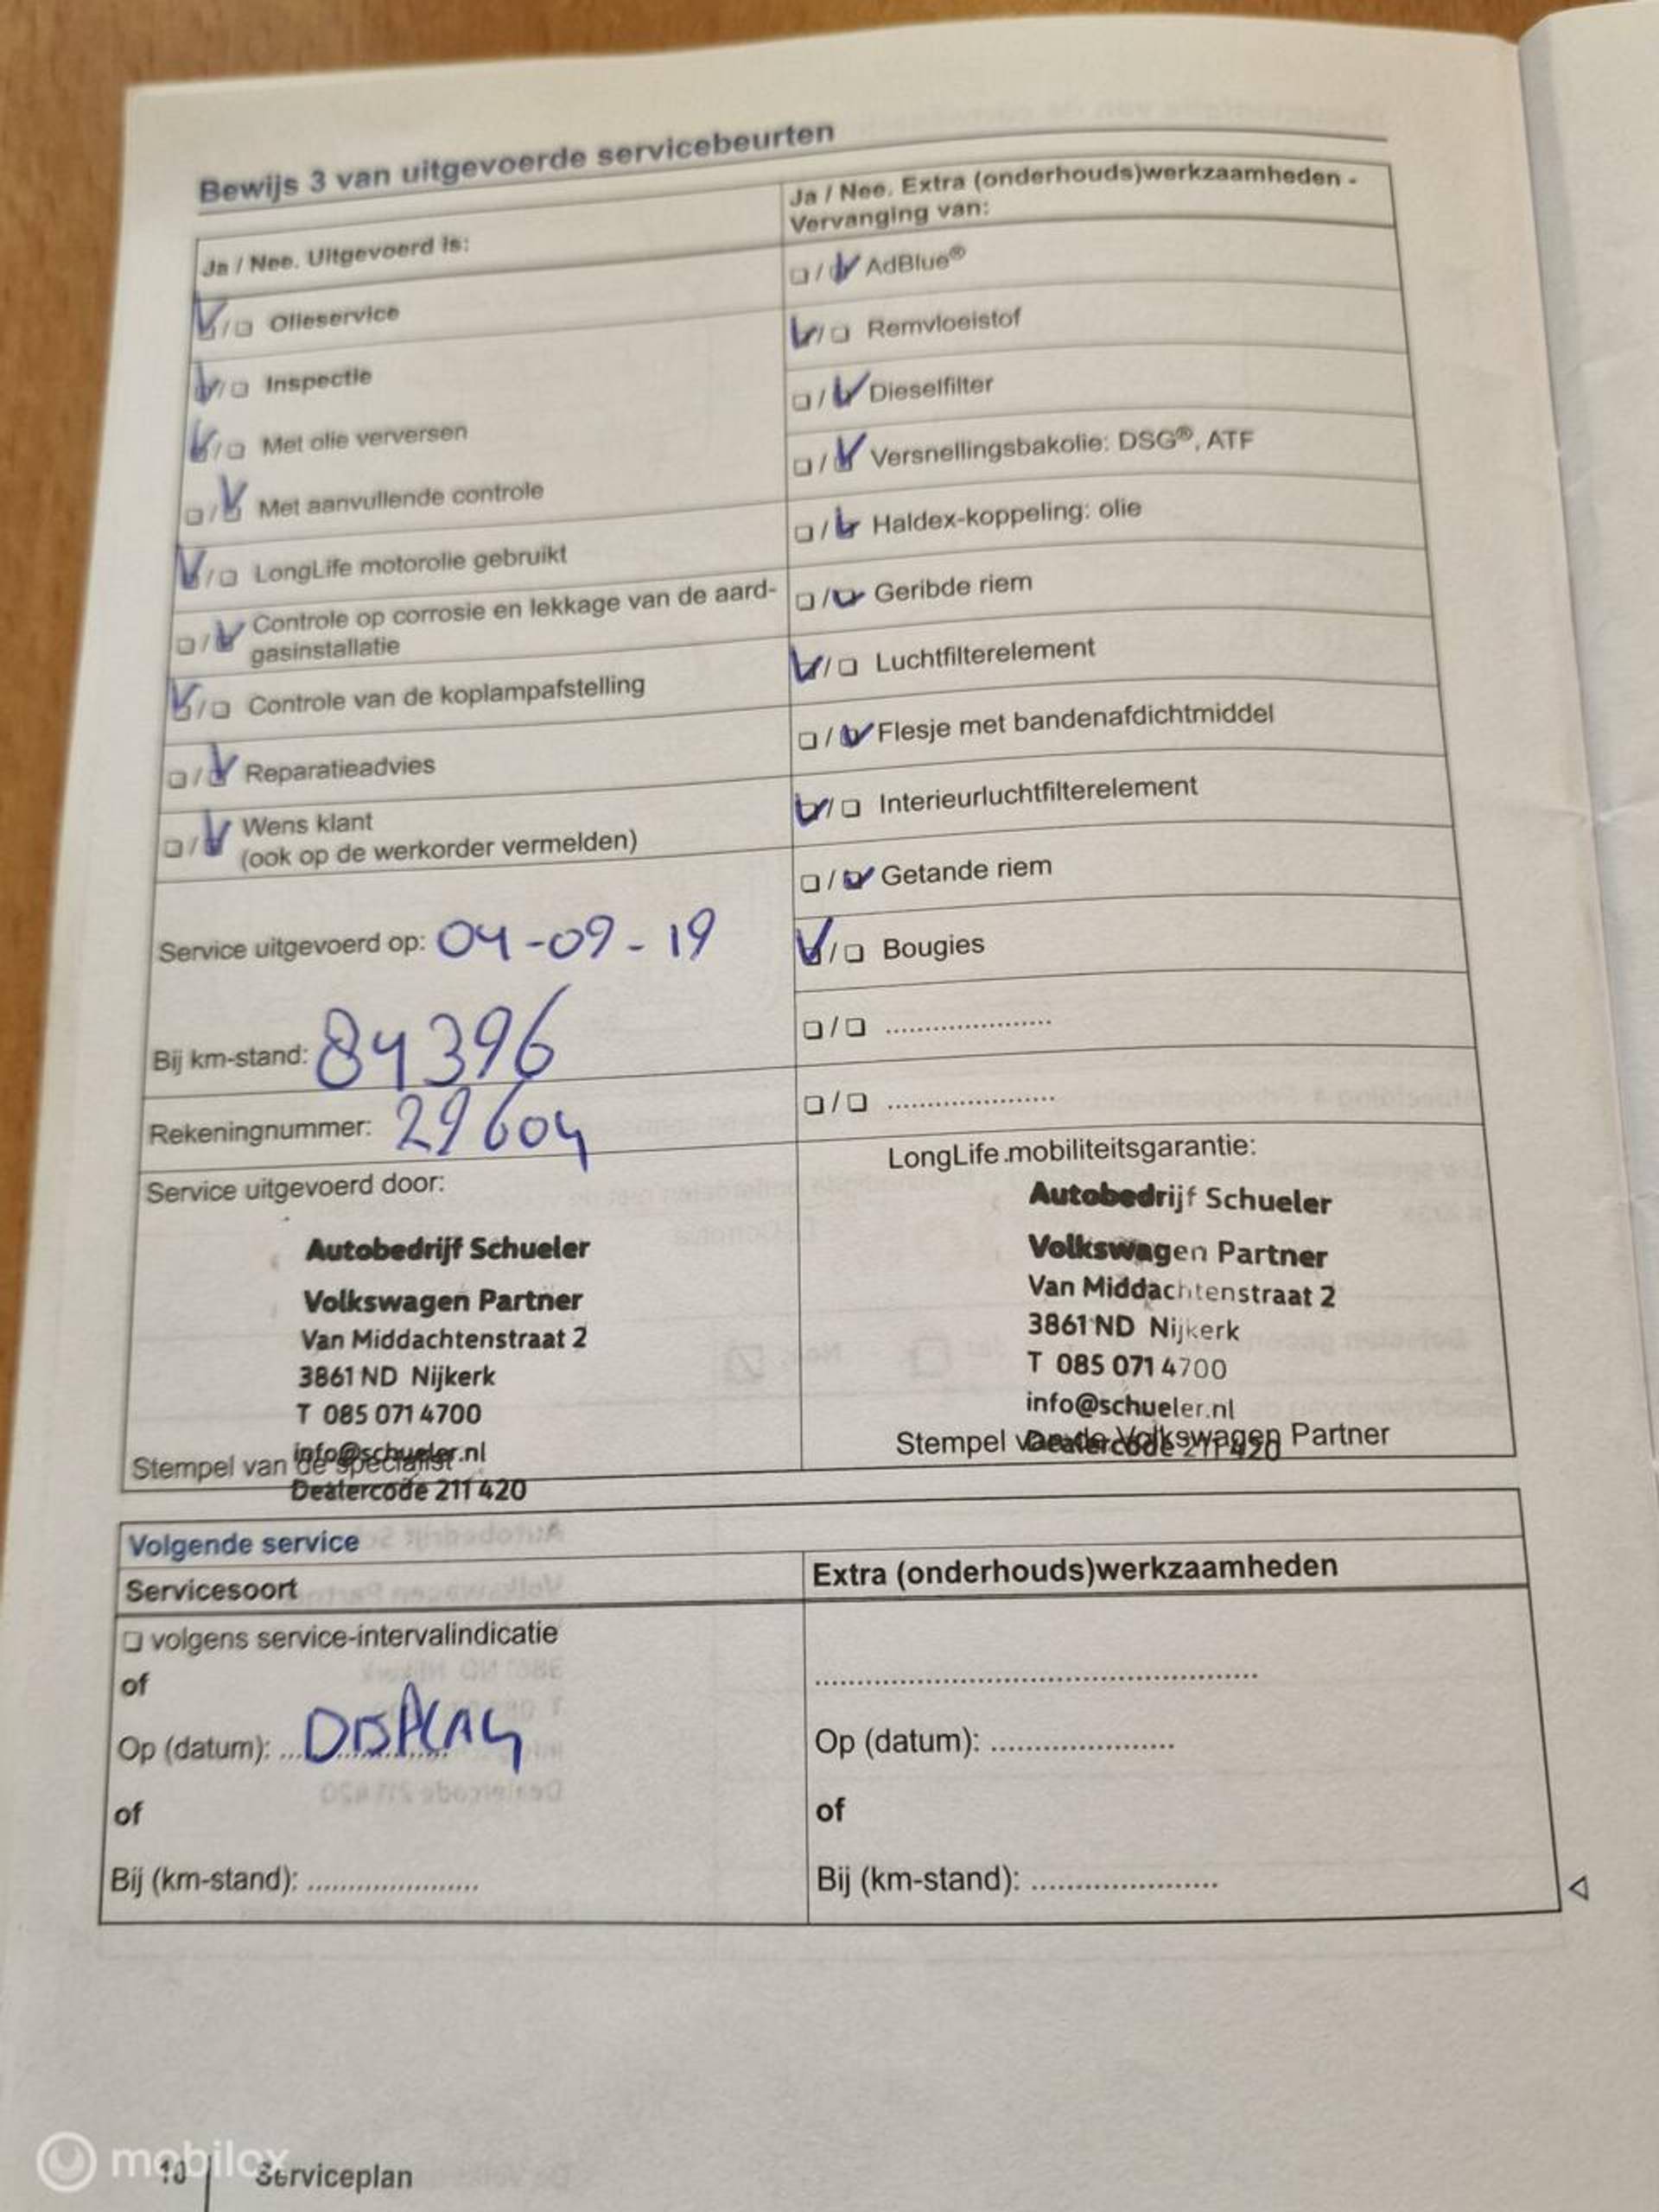 Bewijs 3 van uitgevoerde servicebeurten
Ja / Nee. Uitgevoerd is:
Olieservice
Inspectie
Met olie verversen
Met aanvullende controle
LongLife motorolie gebruikt
Controle op corrosie en lekkage van de aard-
gasinstallatie
Controle van de koplampafstelling
Reparatieadvies
Wens klant
(ook op de werkorder vermelden)
Service uitgevoerd op: 04-09-19
Bij km-stand: 84396
Rekeningnummer: 29604
Service uitgevoerd door:
Autobedrijf Schueler
Volkswagen Partner
Van Middachtenstraat 2
3861 ND Nijkerk
T 085 071 4700
info@schueler.nl
Stempel van de specialist
Dealercode 211 420
Ja / Nee. Extra (onderhouds)werkzaamheden -
Vervanging van:
AdBlue®
Remvloeistof
Dieselfilter
Versnellingsbakolie: DSG®, ATF
Haldex-koppeling: olie
Geribde riem
Luchtfilterelement
Flesje met bandenafdichtmiddel
Interieurluchtfilterelement
Getande riem
Bougies
LongLife mobiliteitsgarantie:
Autobedrijf Schueler
Volkswagen Partner
Van Middachtenstraat 2
3861 ND Nijkerk
T 085 071 4700
info@schueler.nl
Stempel van de Volkswagen Partner
Dealercode 211 420
Volgende service
Servicesoort
volgens service-intervalindicatie
of
Op (datum): DISPLAY
of
Bij (km-stand):
Extra (onderhouds)werkzaamheden
Op (datum):
of
Bij (km-stand):
10 Serviceplan
mobilox